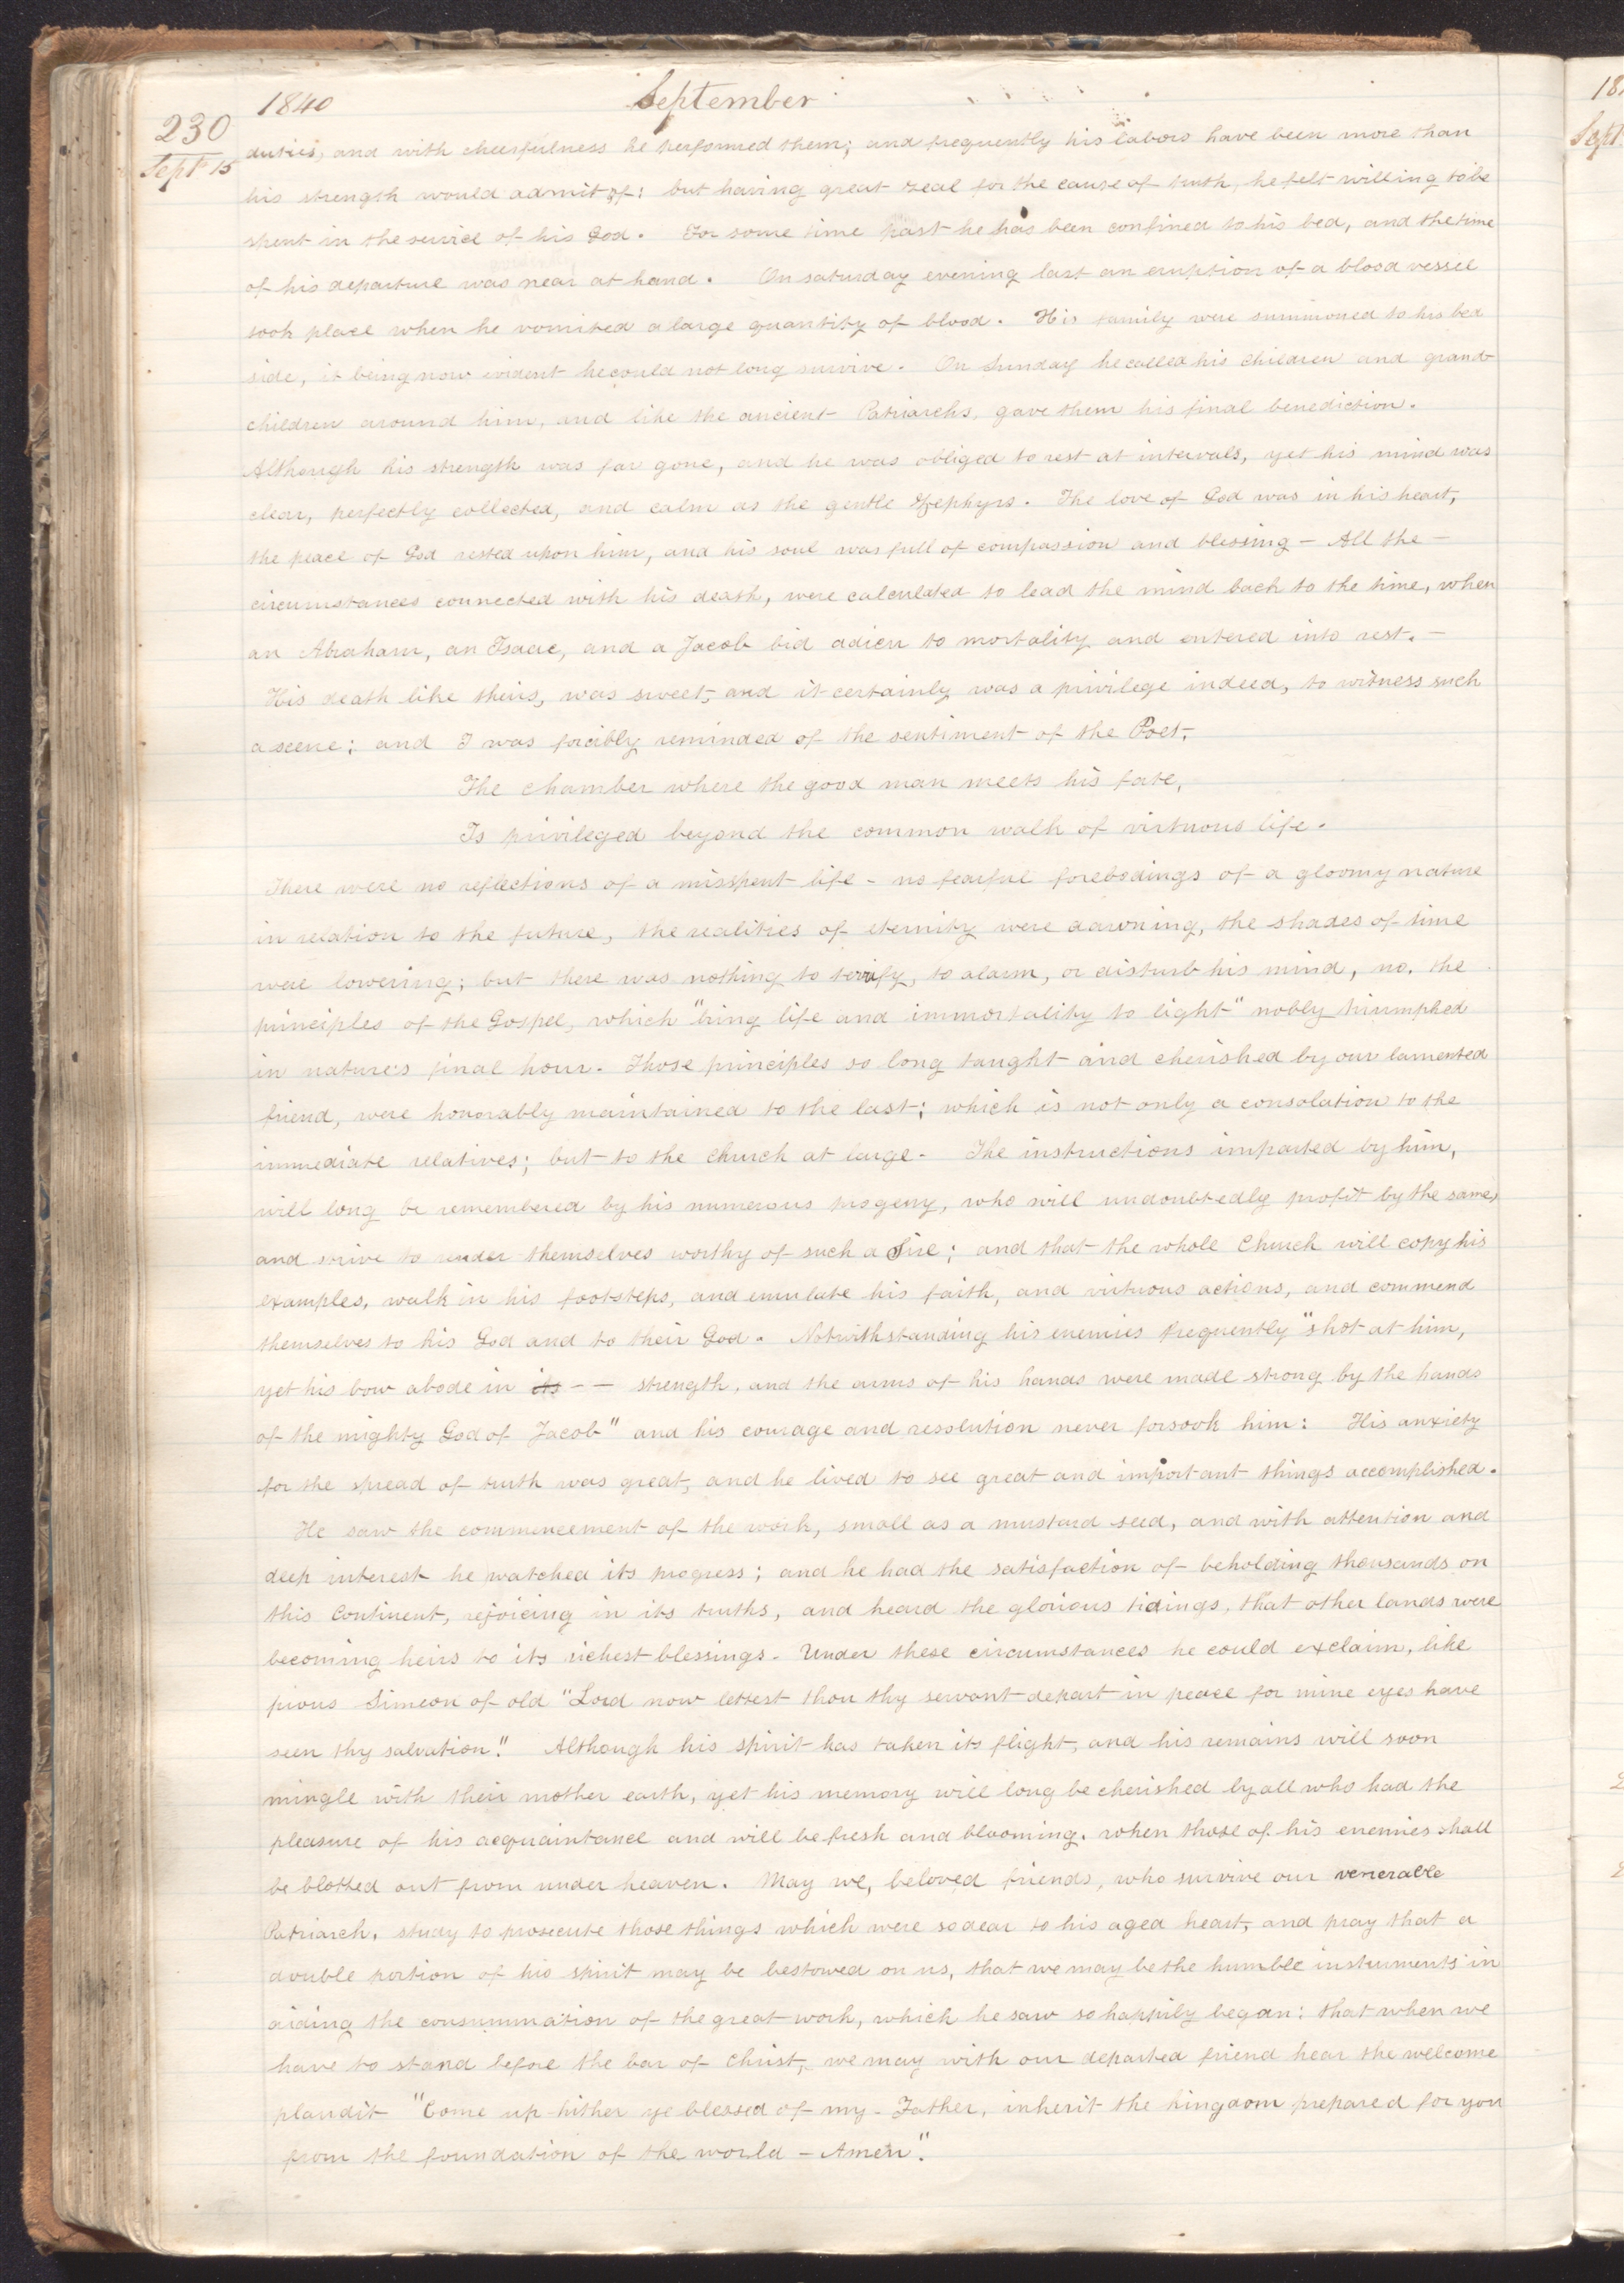 1840 September
230
Sept 15
duties, and with cheerfulness he performed them; and frequently his labors have been more than
his strength would admit of: but having great zeal for the cause of truth, he felt willing to be
spent in the service of his God. For some time past he has been confined to his bed, and the time
of his departure was near at hand. On saturday evening last an eruption of a blood vessel
took place when he vomited a large quantity of blood. His family were summoned to his bed
side, it being now evident he could not long survive. On Sunday he called his children and grand-
children around him, and like the ancient Patriarchs, gave them his final benediction.
Although his strength was far gone, and he was obliged to rest at intervals, yet his mind was
clear, perfectly collected, and calm as the gentle Zephyrs. The love of God was in his heart,
the peace of God rested upon him, and his soul was full of compassion and blessing - All the -
circumstances connected with his death, were calculated to lead the mind back to the time, when
an Abraham, an Isaac, and a Jacob bid adieu to mortality and entered into rest. -
His death like theirs, was sweet, and it certainly was a privilege indeed, to witness such
a scene; and I was forcibly reminded of the sentiment of the Poet,
The chamber where the good man meets his fate,
Is privileged beyond the common walk of virtuous life.
There were no reflections of a misspent life - no fearful forebodings of a gloomy nature
in relation to the future, the realities of eternity were dawning, the shades of time
were lowering; but there was nothing to terrify, to alarm, or disturb his mind, no. the
principles of the Gospel, which "bring life and immortality to light" nobly triumphed
in nature's final hour. Those principles so long taught and cherished by our lamented
friend, were honorably maintained to the last; which is not only a consolation to the
immediate relatives; but to the church at large. The instructions imparted by him,
will long be remembered by his numerous progeny, who will undoubtedly profit by the same,
and strive to render themselves worthy of such a Sire; and that the whole Church will copy his
examples, walk in his footsteps, and emulate his faith, and virtuous actions, and commend
themselves to his God and to their God. Notwithstanding his enemies frequently "shot at him,
yet his bow abode in its -- strength, and the arms of his hands were made strong by the hands
of the mighty God of Jacob" and his courage and resolution never forsook him: His anxiety
for the spread of truth was great, and he lived to see great and important things accomplished.
He saw the commencement of the work, small as a mustard seed, and with attention and
deep interest he watched its progress; and he had the satisfaction of beholding thousands on
this Continent, rejoicing in its truths, and heard the glorious tidings, that other lands were
becoming heirs to its richest blessings. Under these circumstances he could exclaim, like
pious Simeon of old "Lord now lettest thou thy servant depart in peace for mine eyes have
seen thy salvation." Although his spirit has taken its flight, and his remains will soon
mingle with their mother earth, yet his memory will long be cherished by all who had the
pleasure of his acquaintance and will be fresh and blooming. when those of his enemies shall
be blotted out from under heaven. May we, beloved friends, who survive our venerable
Patriarch, study to prosecute those things which were so dear to his aged heart, and pray that a
double portion of his spirit may be bestowed on us, that we may be the humble instruments in
aiding the consummation of the great work, which he saw so happily began; that when we
have to stand before the bar of Christ, we may with our departed friend hear the welcome
plaudit "Come up hither ye blessed of my Father, inherit the kingdom prepared for you
from the foundation of the world - Amen".
18
Sept